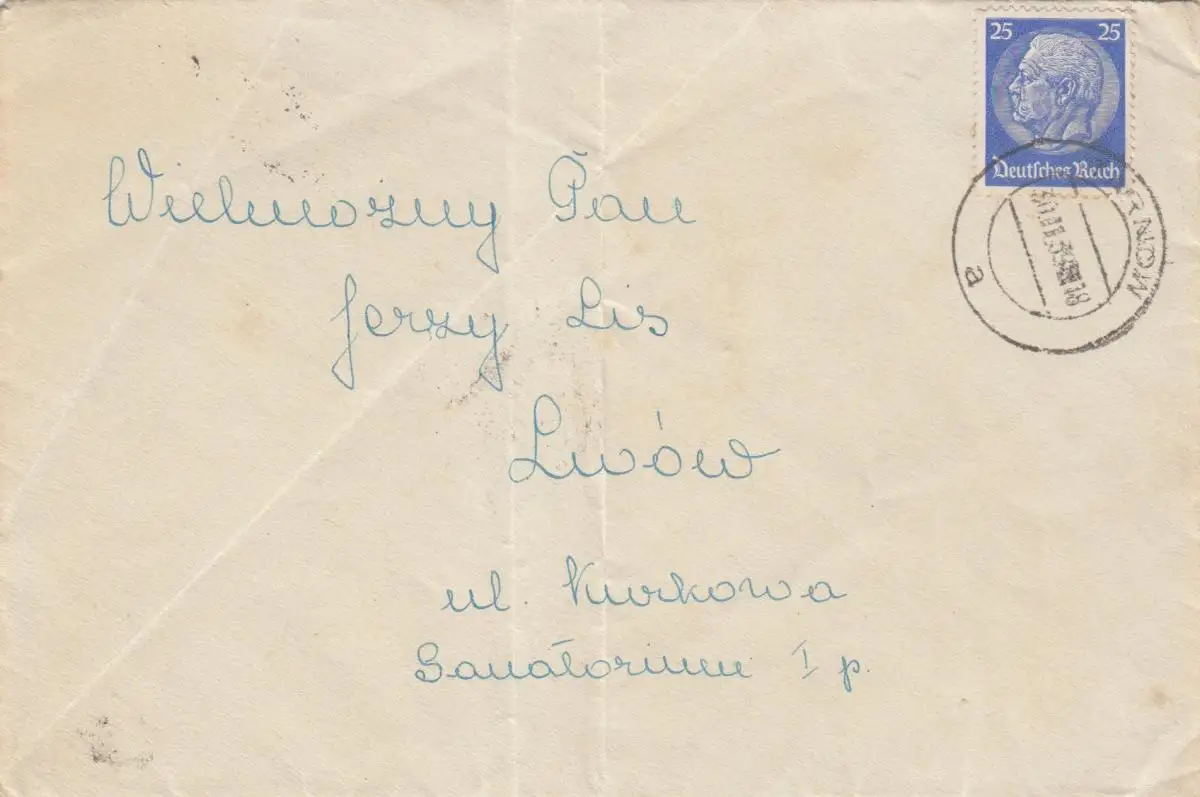 25 25
Deutsches Reich
a
Wielmożny Pan
Jerzy Lis
Lwów
ul. Kurkowa
Sanatorium I p.